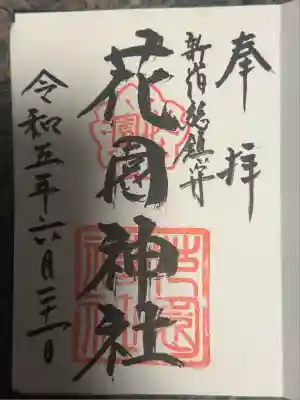 奉拝
新宿総鎮守
花園神社
令和五年六月二十一日